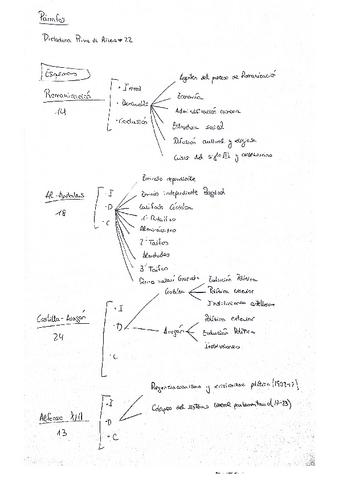 Párrafos
Dictadura Primo de Rivera → 22
Esquemas
Romanización
14
· Introd
· Desarrollo
· Conclusión
Agentes del proceso de Romanización
Economía
Administración romana
Estructura social
Difusión cultural y religiosa
Crisis del siglo III y
Al-Andalus
18
· I
· D
· C
Emirato dependiente
Emirato independiente
Califato Córdoba
1º Taifas
Almorávides
2º Taifas
Almohades
3º Taifas
Reino nazarí Granada
Castilla-Aragón
24
· I
· D
· C
Castilla
Evolución Política
Política exterior
Instituciones
Aragón
Política exterior
Evolución Política
Instituciones
Alfonso XIII
13
· I
· D
· C
Regeneracionismo y revisionismo político (1902-17)
Colapso del sistema parlamentario (17-23)